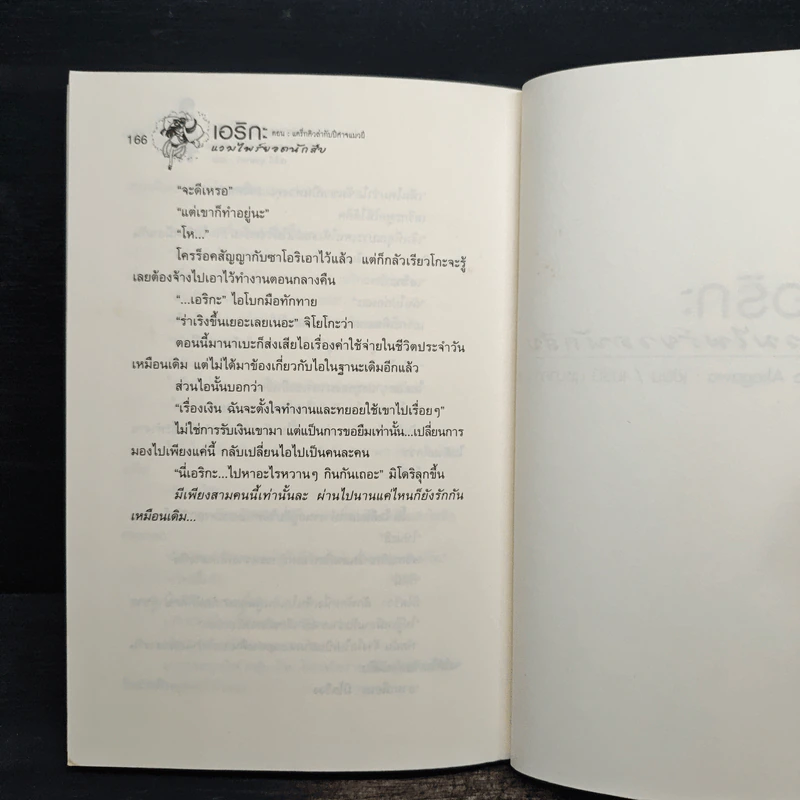 166
เอริกะ ตอน : แคร็กคิวลำกับปีศาจแมวผี
แวมไพร์ยอดนักสืบ
“จะดีเหรอ”
“แต่เขาก็ทำอยู่นะ”
“โห...”
โครร็อคสัญญากับซาโอริเอาไว้แล้ว แต่ก็กลัวเรียวโกะจะรู้
เลยต้องจ้างไปเอาไว้ทำงานตอนกลางคืน
“...เอริกะ” ไอโบกมือทักทาย
“ร่าเริงขึ้นเยอะเลยเนอะ” จิโยโกะว่า
ตอนนี้มานาเบะก็ส่งเสียไอเรื่องค่าใช้จ่ายในชีวิตประจำวัน
เหมือนเดิม แต่ไม่ได้มาข้องเกี่ยวกับไอในฐานะเดิมอีกแล้ว
ส่วนไอนั้นบอกว่า
“เรื่องเงิน ฉันจะตั้งใจทำงานและทยอยใช้เขาไปเรื่อยๆ”
ไม่ใช่การรับเงินเขามา แต่เป็นการขอยืมเท่านั้น...เปลี่ยนการ
มองไปเพียงแค่นี้ กลับเปลี่ยนไอไปเป็นคนละคน
“นี่เอริกะ...ไปหาอะไรหวานๆ กินกันเถอะ” มิโดริลุกขึ้น
มีเพียงสามคนนี้เท่านั้นละ ผ่านไปนานแค่ไหนก็ยังรักกัน
เหมือนเดิม...